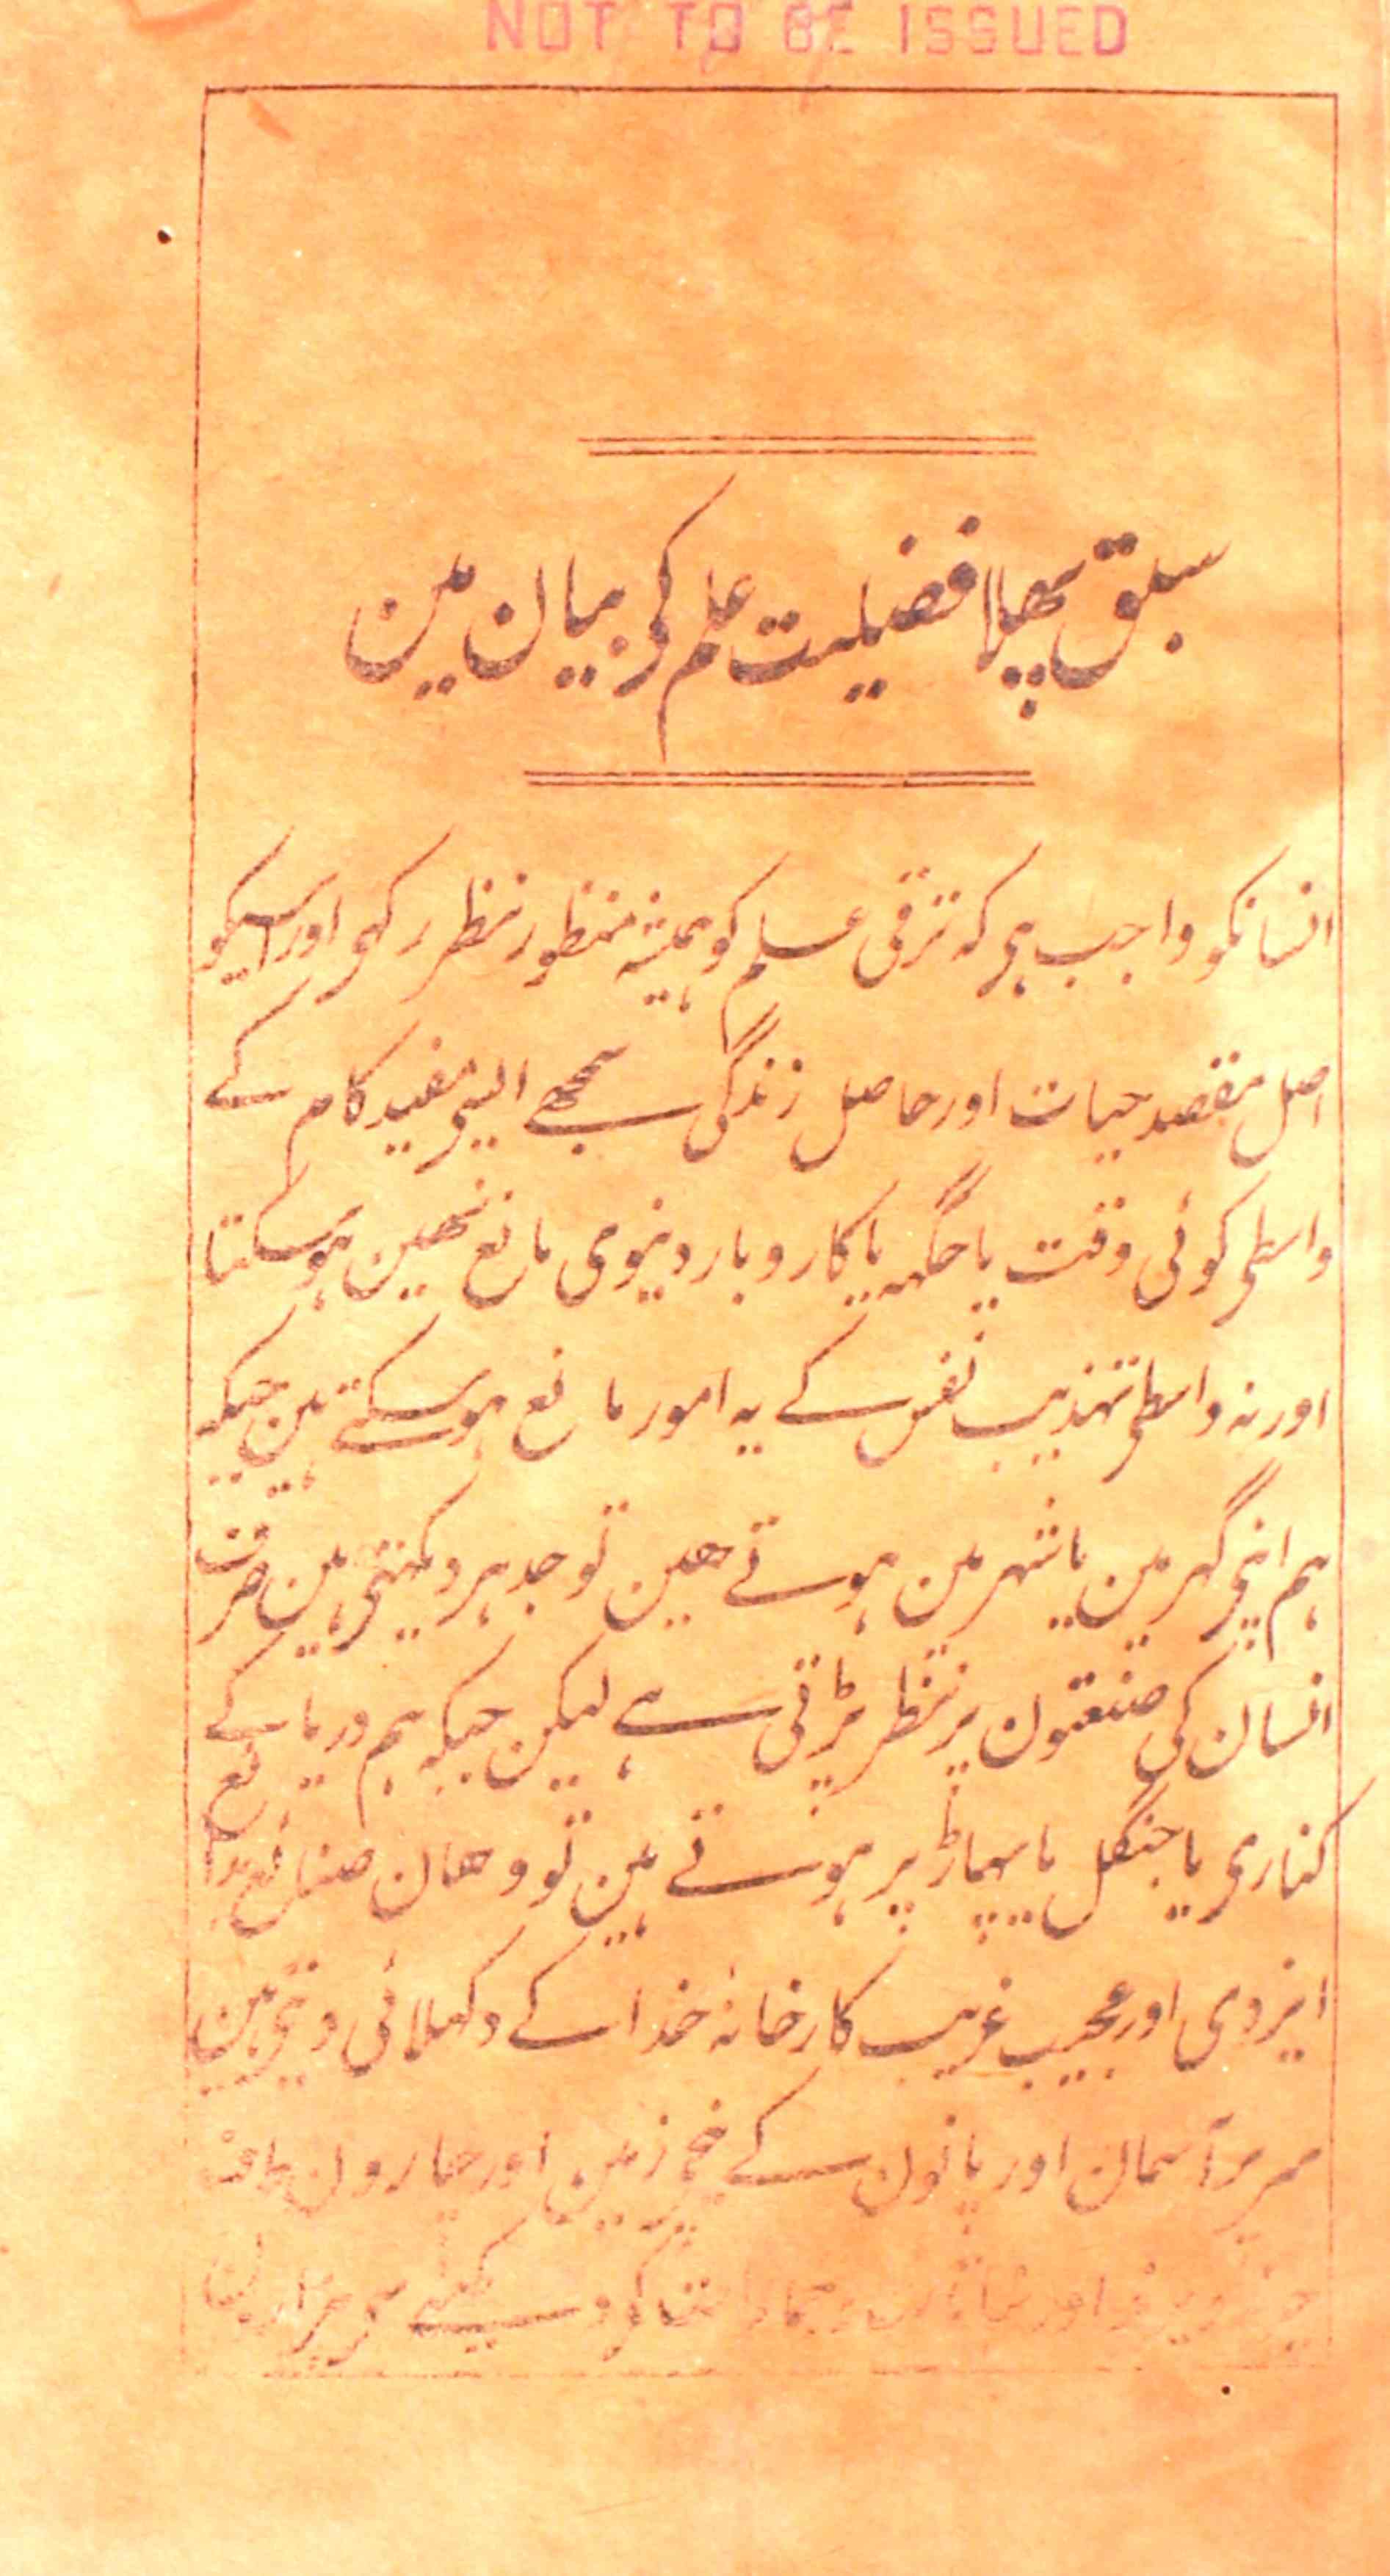 NOT TO BE ISSUED
سبق پھلا فضیلت علم کی بیان مین
انسانکو واجب ہی کہ ترقی علم کو ہمیشہ منظور نظر رکہی اور اسیکو
اصل مقصد حیات اور حاصل زندگی سمجھے ایسی مفید کام کے
واسطی کوئی وقت یا جگہہ یا کاروبار دنیوی مانع نھین ہوسکتا
اور نہ واسطی تہذیب نفس کے یہ امور مانع ہوسکتے ہین جبکہ
ہم اپنی گہر مین یا شہر مین ہوتے ھین تو جدہر دیکہتی ہین صرف
انسان کی صنعتون پر نظر پڑتی ہے لیکن جبکہ ہم دریا کے
کناری یا جنگل یا پہاڑ پر ہوتے ہین تو وھان صنائع بدائع
ایزدی اور عجیب غریب کارخانۂ خدا کے دکھلائی دیتی ہین
سر پر آسمان اور پانون کے نیچی زمین اور چارون طرف
اور